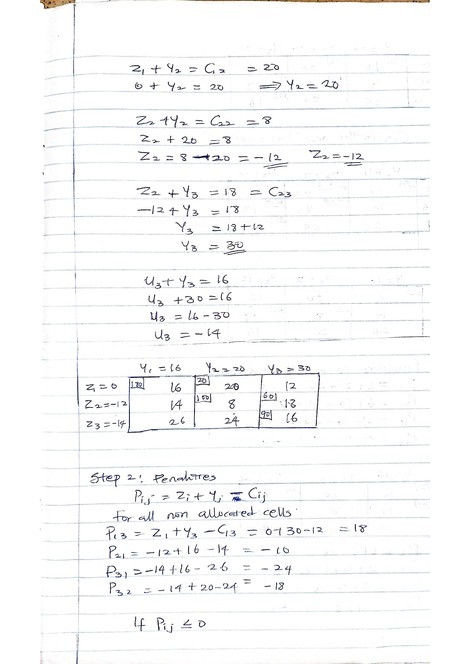 Z₁ + Y₂ = C₁₂ = 20
0 + Y₂ = 20 ⟹ Y₂ = 20
Z₂ + Y₂ = C₂₂ = 8
Z₂ + 20 = 8
Z₂ = 8 - 20 = -12 Z₂ = -12
Z₂ + Y₃ = 18 = C₂₃
-12 + Y₃ = 18
Y₃ = 18 + 12
Y₃ = 30
U₃ + Y₃ = 16
U₃ + 30 = 16
U₃ = 16 - 30
U₃ = -14
Y₁ = 16 Y₂ = 20 Y₃ = 30
Z₁ = 0 16 20 20 12
Z₂ = -12 14 100 8 60 18
Z₃ = -14 26 24 90 16
Step 2: Penalties
Pij = Zi + Yj - Cij
for all non allocated cells
P₁₃ = Z₁ + Y₃ - C₁₃ = 0 + 30 - 12 = 18
P₂₁ = -12 + 16 - 14 = -10
P₃₁ = -14 + 16 - 26 = -24
P₃₂ = -14 + 20 - 24 = -18
If Pij ≤ 0